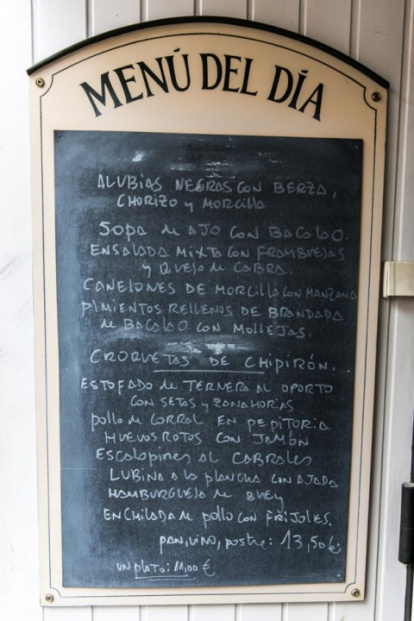 MENÚ DEL DÍA
ALUBIAS NEGRAS CON BERZA,
CHORIZO y MORCILLA
SOPA de AJO CON BACALAO.
ENSALADA MIXTA CON FRAMBUESAS
y QUESO de CABRA.
CANELONES DE MORCILLA CON MANZANA
PIMIENTOS RELLENOS DE BRANDADA
de BACALAO CON MOLLEJAS.
CROQUETAS DE CHIPIRÓN.
ESTOFADO de TERNERA AL OPORTO
CON SETAS y ZANAHORIAS
pollo de CORRAL EN PEPITORIA
HUEVOS ROTOS CON JAMÓN
ESCALOPINES AL CABRALES
LUBINA a la plancha CON AJADA
HAMBURGUESA de BUEY
ENCHILADA de pollo CON FRIJOLES.
pan, vino, postre: 13,50€.
UN plato: 11,00 €